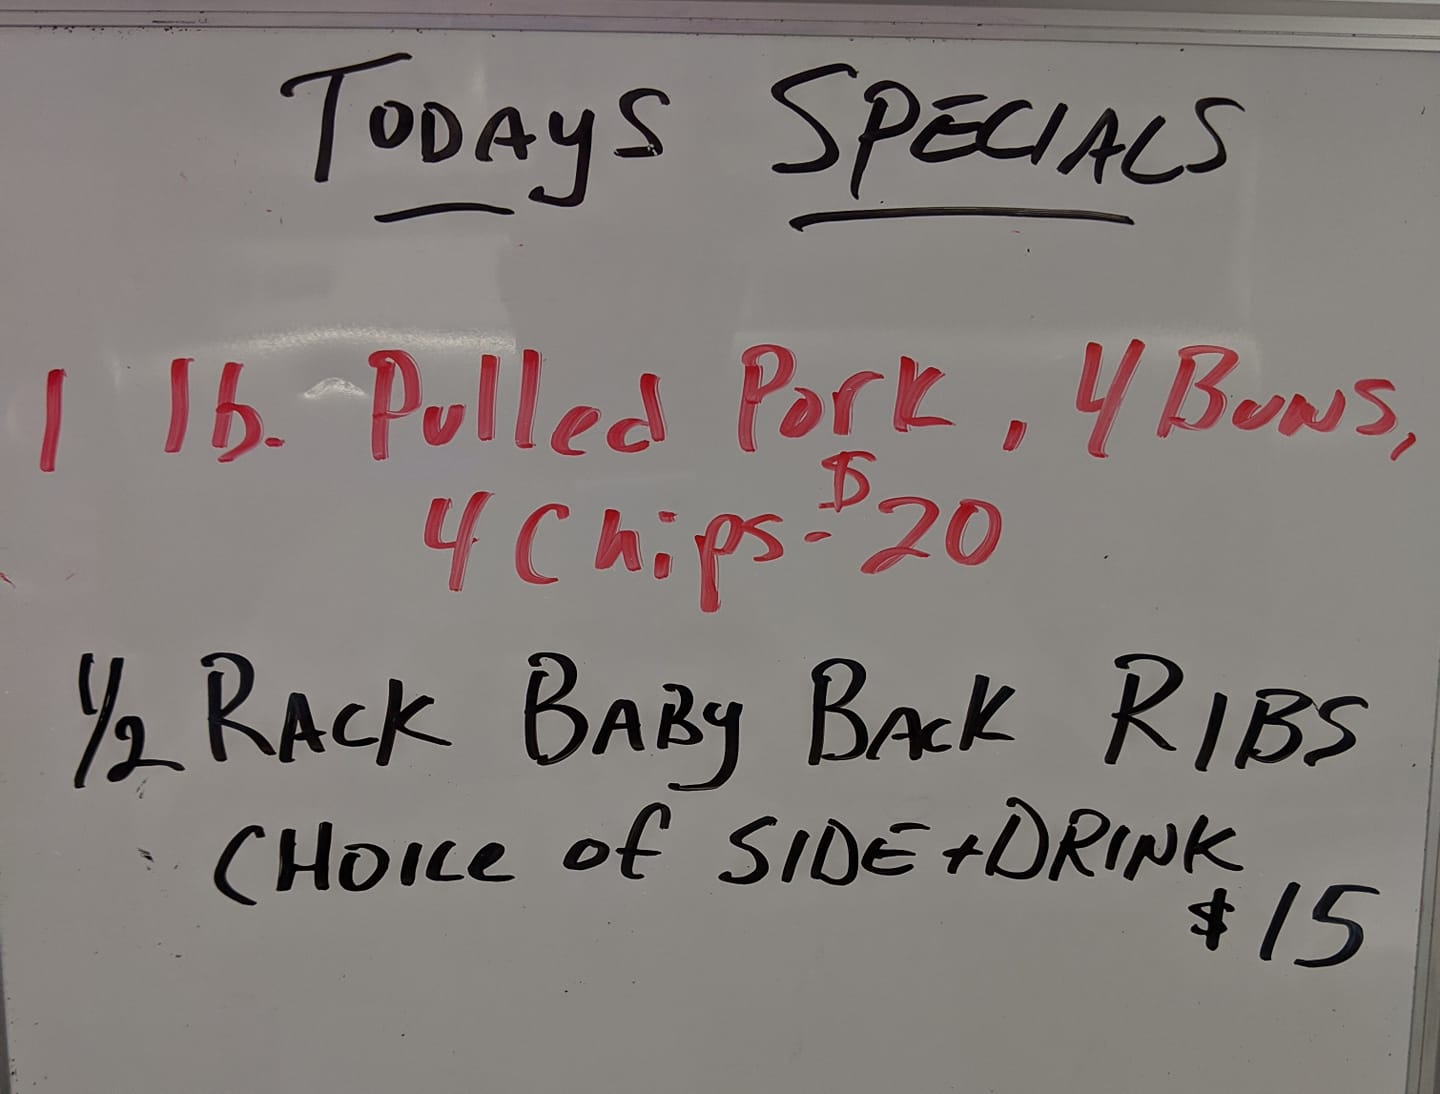 TODAYS SPECIALS
1 lb. Pulled Pork, 4 Buns,
4 Chips-$20
1/2 RACK BABY BACK RIBS
CHOICE of SIDE+DRINK
$15